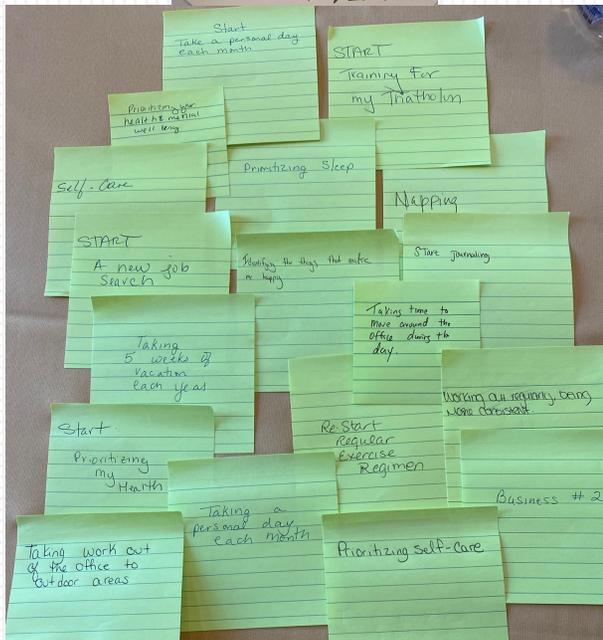 Start
Take a personal day
each month
START
Training for
my Triathlon
Prioritizing your
health & mental
well being
Prioritizing Sleep
Self-Care
Napping
START
A new job
search
Identifying the things that make
me happy
Start journaling
Taking time to
move around the
office during the
day.
Taking
5 weeks of
vacation
each year
Working out regularly, being
more consistent.
Start
Prioritizing
my
Health
Re-Start
Regular
Exercise
Regimen
Business # 2
Taking a
personal day
each month
Taking work out
of the office to
outdoor areas
Prioritizing self-care